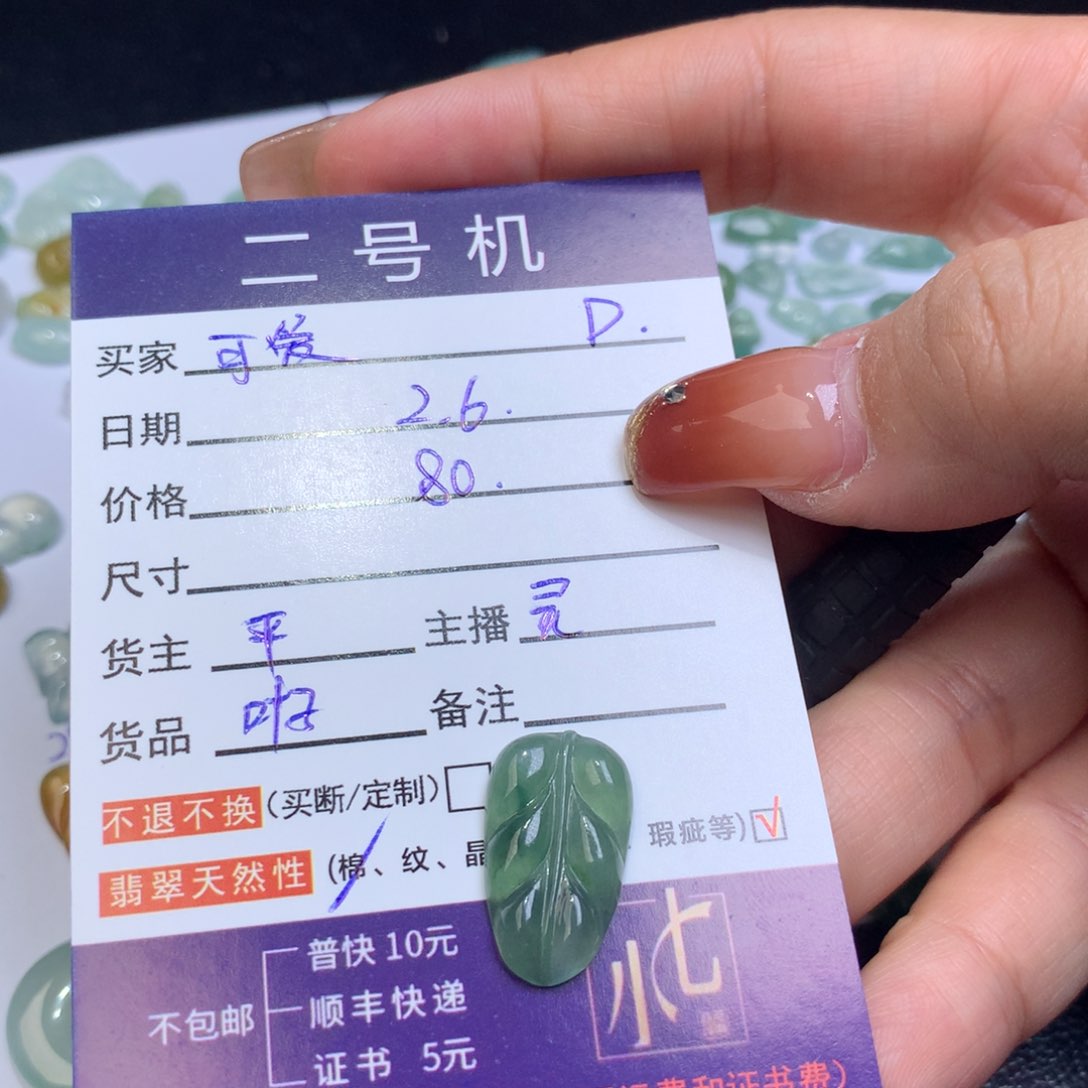 二号机
买家 可爱 D.
日期 2.6.
价格 80.
尺寸
货主 平 主播 灵
货品 叶子 备注
不退不换(买断/定制)
翡翠天然性 (棉、纹、晶 瑕疵等) √
普快 10元
不包邮 顺丰快递
证书 5元
费和证书费)